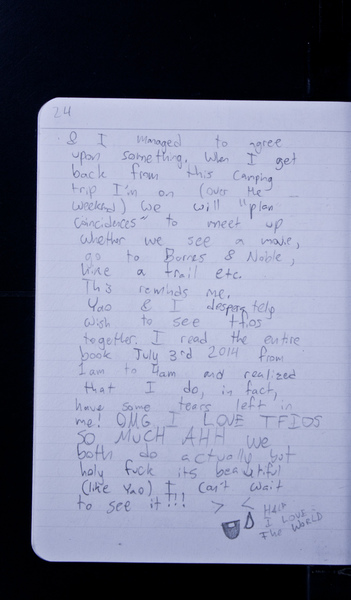 24
& I managed to agree
upon something. When I get
back from this camping
trip I'm on (over the
weekend) we will "plan
coincidences" to meet up
whether we see a movie,
go to Barnes & Noble,
hike a trail etc.
Ths reminds me.
Yao & I desperatelp
wish to see tfios
together. I read the entire
book July 3rd 2014 from
1am to 4am and realized
that I do, in fact,
have some tears left in
me! OMG I LOVE TFIOS
SO MUCH AHH we
both do actually but
holy fuck its beautiful
(like Yao) I can't wait
to see it!!! > <
I LOVE
THE WORLD